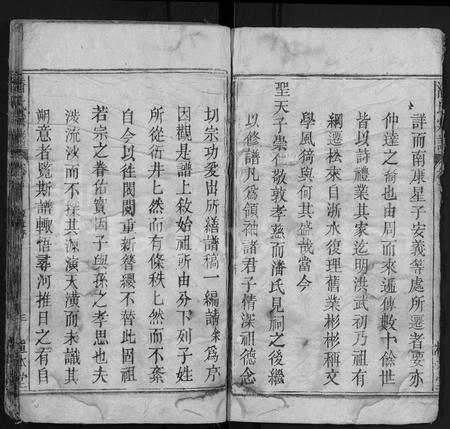 詳而南康星子安義等處所遷者要亦
仲達之裔也由周而來遞傳數十餘世
皆以詩禮業其家迄明洪武初乃祖有
綱遷松來自浙水復理舊業彬彬稱文
學風猗與何其盛哉當今
聖天子崇仁敬敦孝慈而潘氏見祠之後繼
以修譜凡為領袖諸君子情深祖德念
切宗功爰出所繕譜稿一編請來為序
因觀是譜上敘始祖所由分下列子姓
所從衍井上然而有條秩上然而不紊
自今以往閥閱重新簪纓不替此固祖
若宗之眷佑實因子與孫之孝思也夫
汲流波而不探其源演天潢而未識其
朔意者覽斯譜輙悟尋河推日之有自